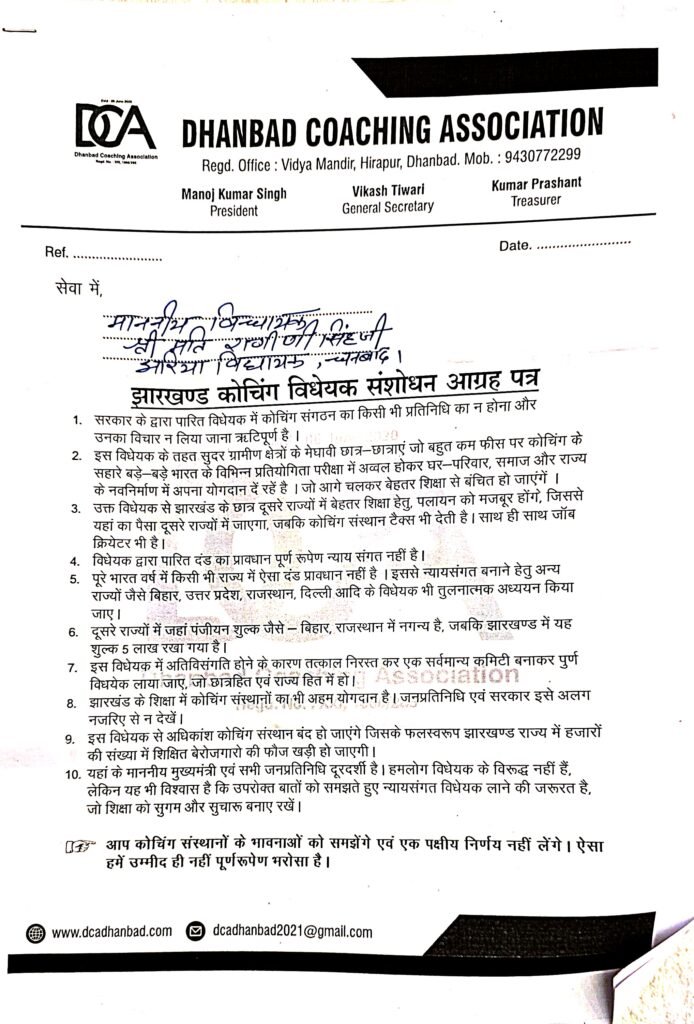 DCA
Dhanbad Coaching Association
DHANBAD COACHING ASSOCIATION
Regd. Office : Vidya Mandir, Hirapur, Dhanbad. Mob. : 9430772299
Manoj Kumar Singh
President
Vikash Tiwari
General Secretary
Kumar Prashant
Treasurer
Ref. ........................
Date. ..........................
सेवा में,
माननीय विध्यायक
श्री मति रागीणी सिंह जी
झरिया विद्यायक, धनबाद।
झारखण्ड कोचिंग विधेयक संशोधन आग्रह पत्र
1. सरकार के द्वारा पारित विधेयक में कोचिंग संगठन का किसी भी प्रतिनिधि का न होना और
उनका विचार न लिया जाना ऋटिपूर्ण है ।
2. इस विधेयक के तहत सुदर ग्रामीण क्षेत्रों के मेघावी छात्र–छात्राएं जो बहुत कम फीस पर कोचिंग के
सहारे बड़े–बड़े भारत के विभिन्न प्रतियोगिता परीक्षा में अव्वल होकर घर–परिवार, समाज और राज्य
के नवनिर्माण में अपना योगदान दें रहें है । जो आगे चलकर बेहतर शिक्षा से बंचित हो जाएंगें ।
3. उक्त विधेयक से झारखंड के छात्र दूसरे राज्यों में बेहतर शिक्षा हेतु, पलायन को मजबूर होंगे, जिससे
यहां का पैसा दूसरे राज्यों में जाएगा, जबकि कोचिंग संस्थान टैक्स भी देती है। साथ ही साथ जॉब
क्रियेटर भी है।
4. विधेयक द्वारा पारित दंड का प्रावधान पूर्ण रूपेण न्याय संगत नहीं है।
5. पूरे भारत वर्ष में किसी भी राज्य में ऐसा दंड प्रावधान नहीं है । इससे न्यायसंगत बनाने हेतु अन्य
राज्यों जैसे बिहार, उत्तर प्रदेश, राजस्थान, दिल्ली आदि के विधेयक भी तुलनात्मक अध्ययन किया
जाए।
6. दूसरे राज्यों में जहां पंजीयन शुल्क जैसे – बिहार, राजस्थान में नगन्य है, जबकि झारखण्ड में यह
शुल्क 5 लाख रखा गया है।
7. इस विधेयक में अतिविसंगति होने के कारण तत्काल निरस्त कर एक सर्वमान्य कमिटी बनाकर पुर्ण
विधयके लाया जाए, जो छात्रहित एवं राज्य हित में हो।
8. झारखंड के शिक्षा में कोचिंग संस्थानों का भी अहम योगदान है। जनप्रतिनिधि एवं सरकार इसे अलग
नजरिए से न देखें।
9. इस विधेयक से अधिकांश कोचिंग संस्थान बंद हो जाएंगे जिसके फलस्वरूप झारखण्ड राज्य में हजारों
की संख्या में शिक्षित बेरोजगारो की फौज खड़ी हो जाएगी।
10. यहां के माननीय मुख्यमंत्री एवं सभी जनप्रतिनिधि दूरदर्शी है। हमलोग विधेयक के विरूद्ध नहीं हैं,
लेकिन यह भी विश्वास है कि उपरोक्त बातों को समझते हुए न्यायसंगत विधेयक लाने की जरूरत है,
जो शिक्षा को सुगम और सुचारू बनाए रखें।
आप कोचिंग संस्थानों के भावनाओं को समझेंगे एवं एक पक्षीय निर्णय नहीं लेंगे। ऐसा
हमें उम्मीद ही नहीं पूर्णरूपेण भरोसा है।
www.dcadhanbad.com dcadhanbad2021@gmail.com